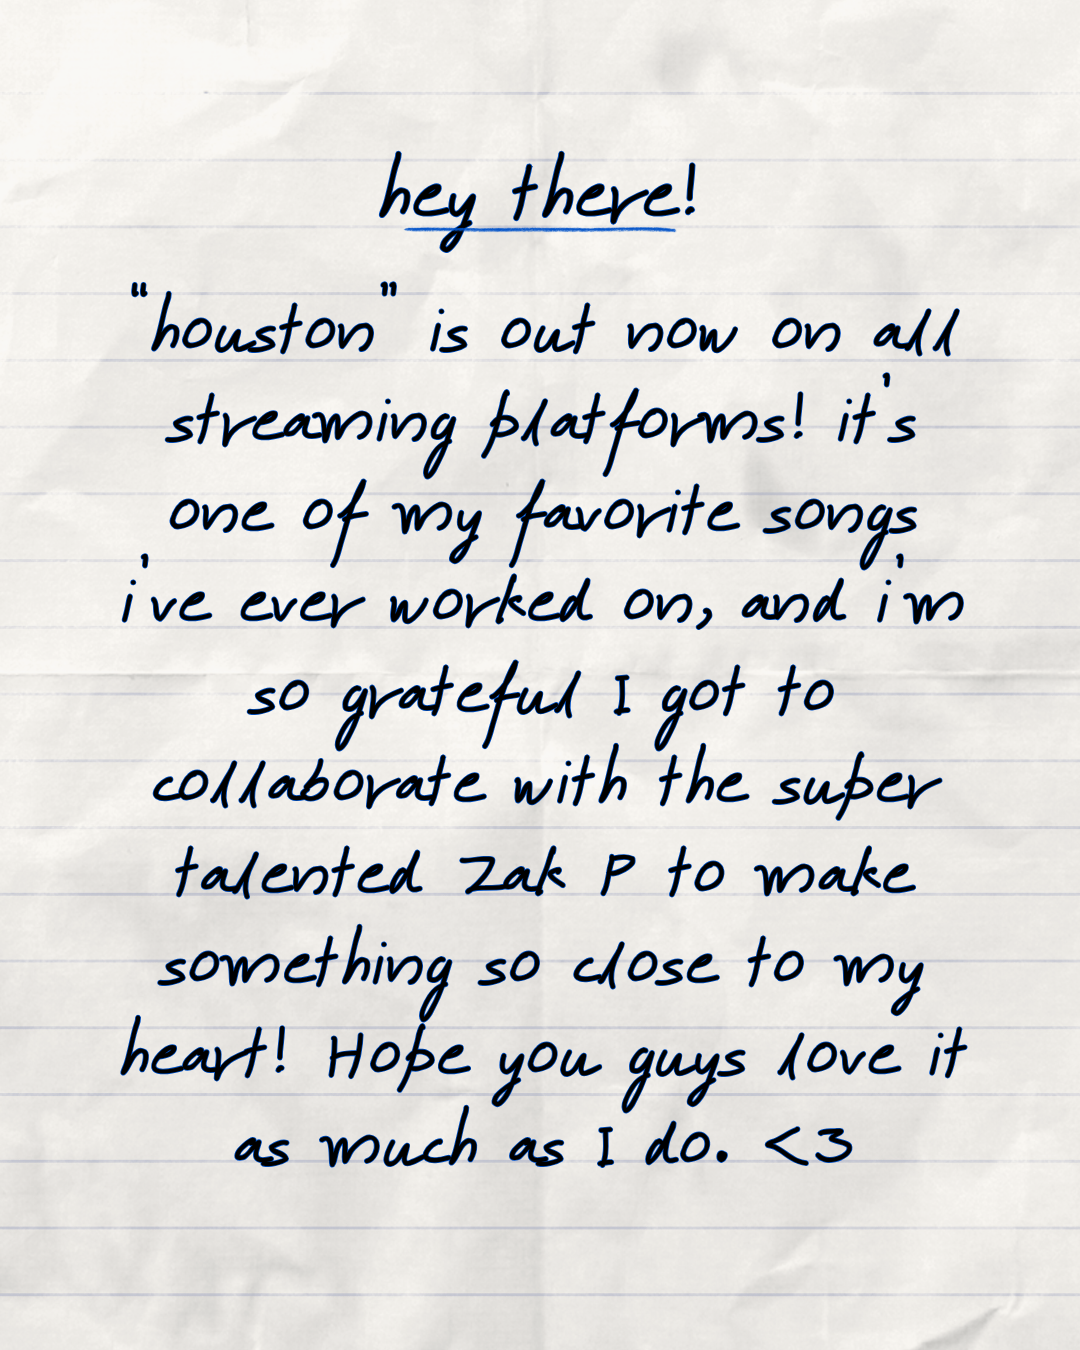 hey there!
"houston" is out now on all
streaming platforms! it's
one of my favorite songs
i've ever worked on, and i'm
so grateful I got to
collaborate with the super
talented Zak P to make
something so close to my
heart! Hope you guys love it
as much as I do. <3